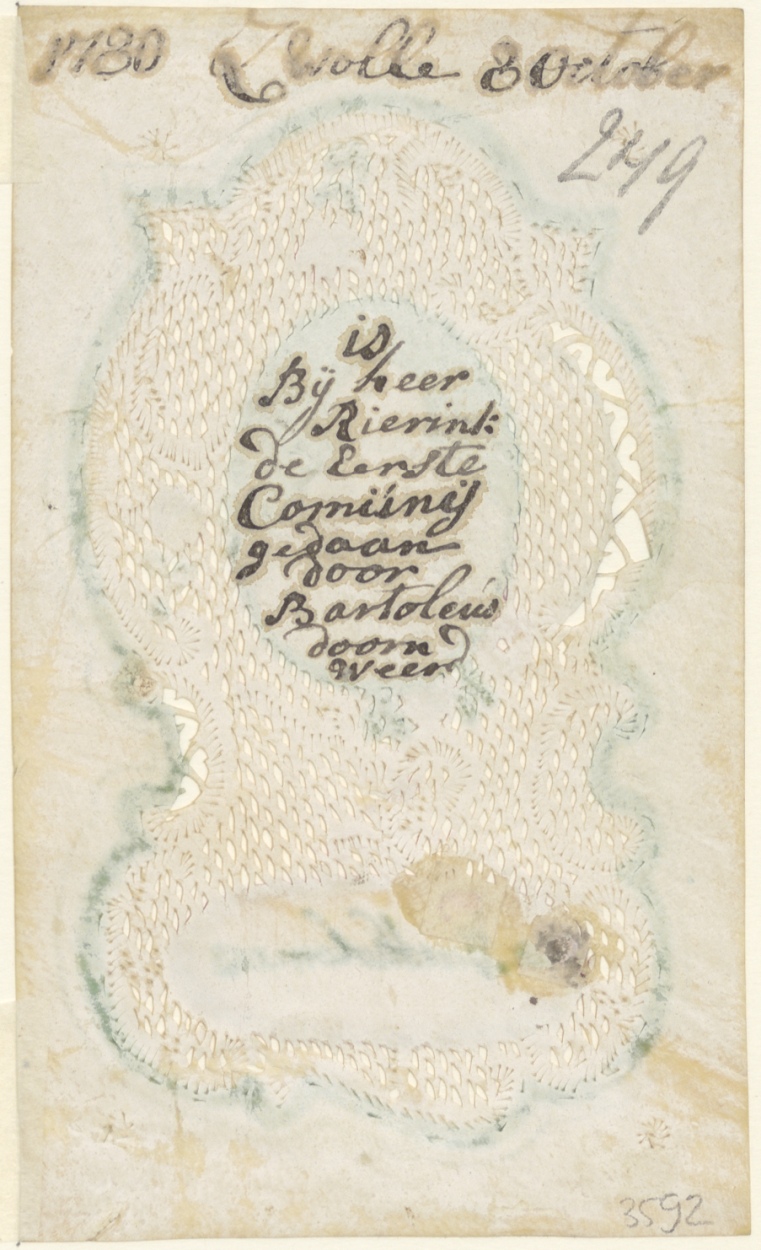 1780 Zwolle 8 October
249
is
Bÿ heer
Rierink
de Eerste
Comúnij
gedaan
door
Bartoleús
doorn
weerd
3592